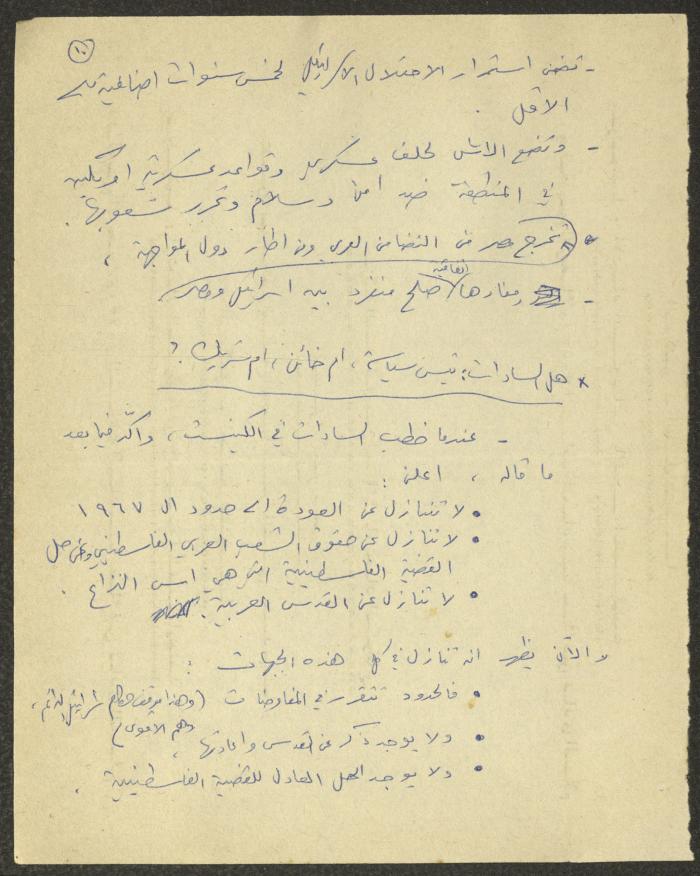 ١٠
- تضمن استمرار الاحتلال الاسرائيلي لخمس سنوات اضافية على
الاقل .
- وتضع الاسس لحلف عسكري وقواعد عسكرية امريكية
في المنطقة ضد امن وسلام وتحرر شعوبها .
تخرج مصر من التضامن العربي ومن اطار دول المواجهة ،
- ومفادها اتفاقية صلح منفرد بين اسرائيل ومصر .
× هل السادات: تيس سياسة ، ام خائن ، ام شريك ؟
- عندما خطب السادات في الكنيست ، واكّد فيما بعد
ما قاله ، اعلن :
• لا تنازل عن العودة الى حدود ال ١٩٦٧
• لا تنازل عن حقوق الشعب العربي الفلسطيني وعن حل
القضية الفلسطينية التي هي اس النزاع .
• لا تنازل عن القدس العربية .
والآن يظهر انه تنازل في كل هذه الجهات :
• فالحدود تتقرر في المفاوضات (وهذا موقف حكام اسرائيل الدائم ،
وهم الاقوى)
• ولا يوجد ذكر عن القدس واعادتها ،
• ولا يوجد الحل العادل للقضية الفلسطينية ،